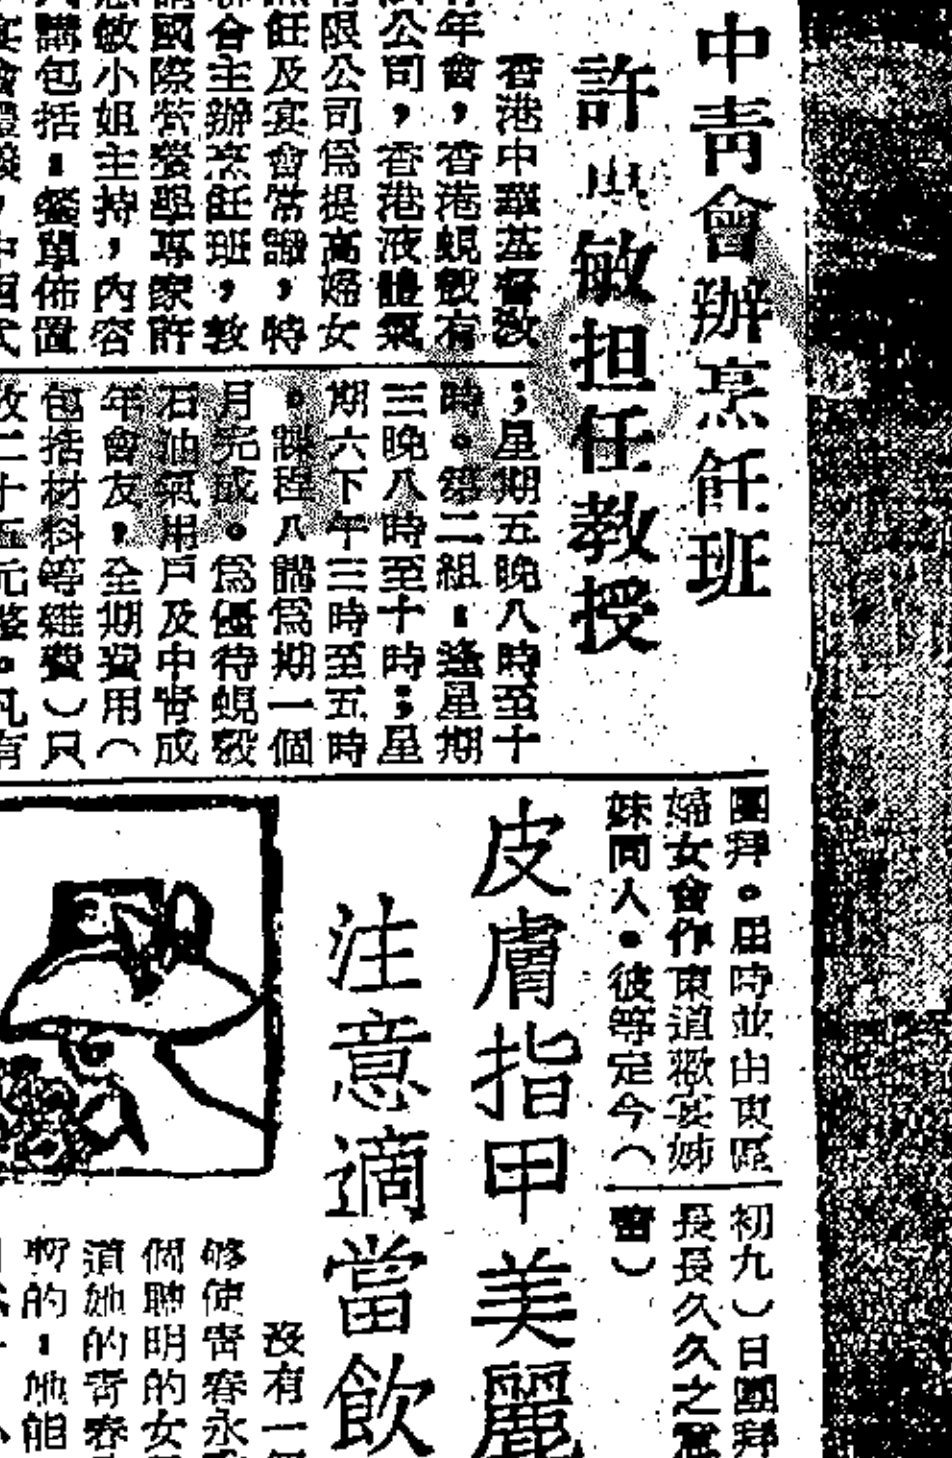 中靑會辦烹飪班
許
敏担任教授
香港中華基督敎
靑年會，香港蜆殼有
限公司，香港液體氣
有限公司爲提高婦女
烹飪及宴會常識，特
聯合主辦烹飪班，敦
請國際營養學專家許
敏小姐主持，內容
講包括：餐單佈置
；星期五晚八時至十
時。第二組：逢星期
三晚八時至十時；星
期六下午三時至五時
。課程八課爲期一個
月完成。爲優待蜆殼
石油氣用戶及中靑成
年會友，全期費用（
包括材料等雜費）只
收二十五元整。凡有
團拜。屆時並由東區
婦女會作東道歡宴姊
妹同人。彼等定今（
初九）日團拜
長長久久之意
皮膚指甲美麗
注意適當飲
沒有一
够使靑春永
個聰明的女
道她的靑春
暫的：她能